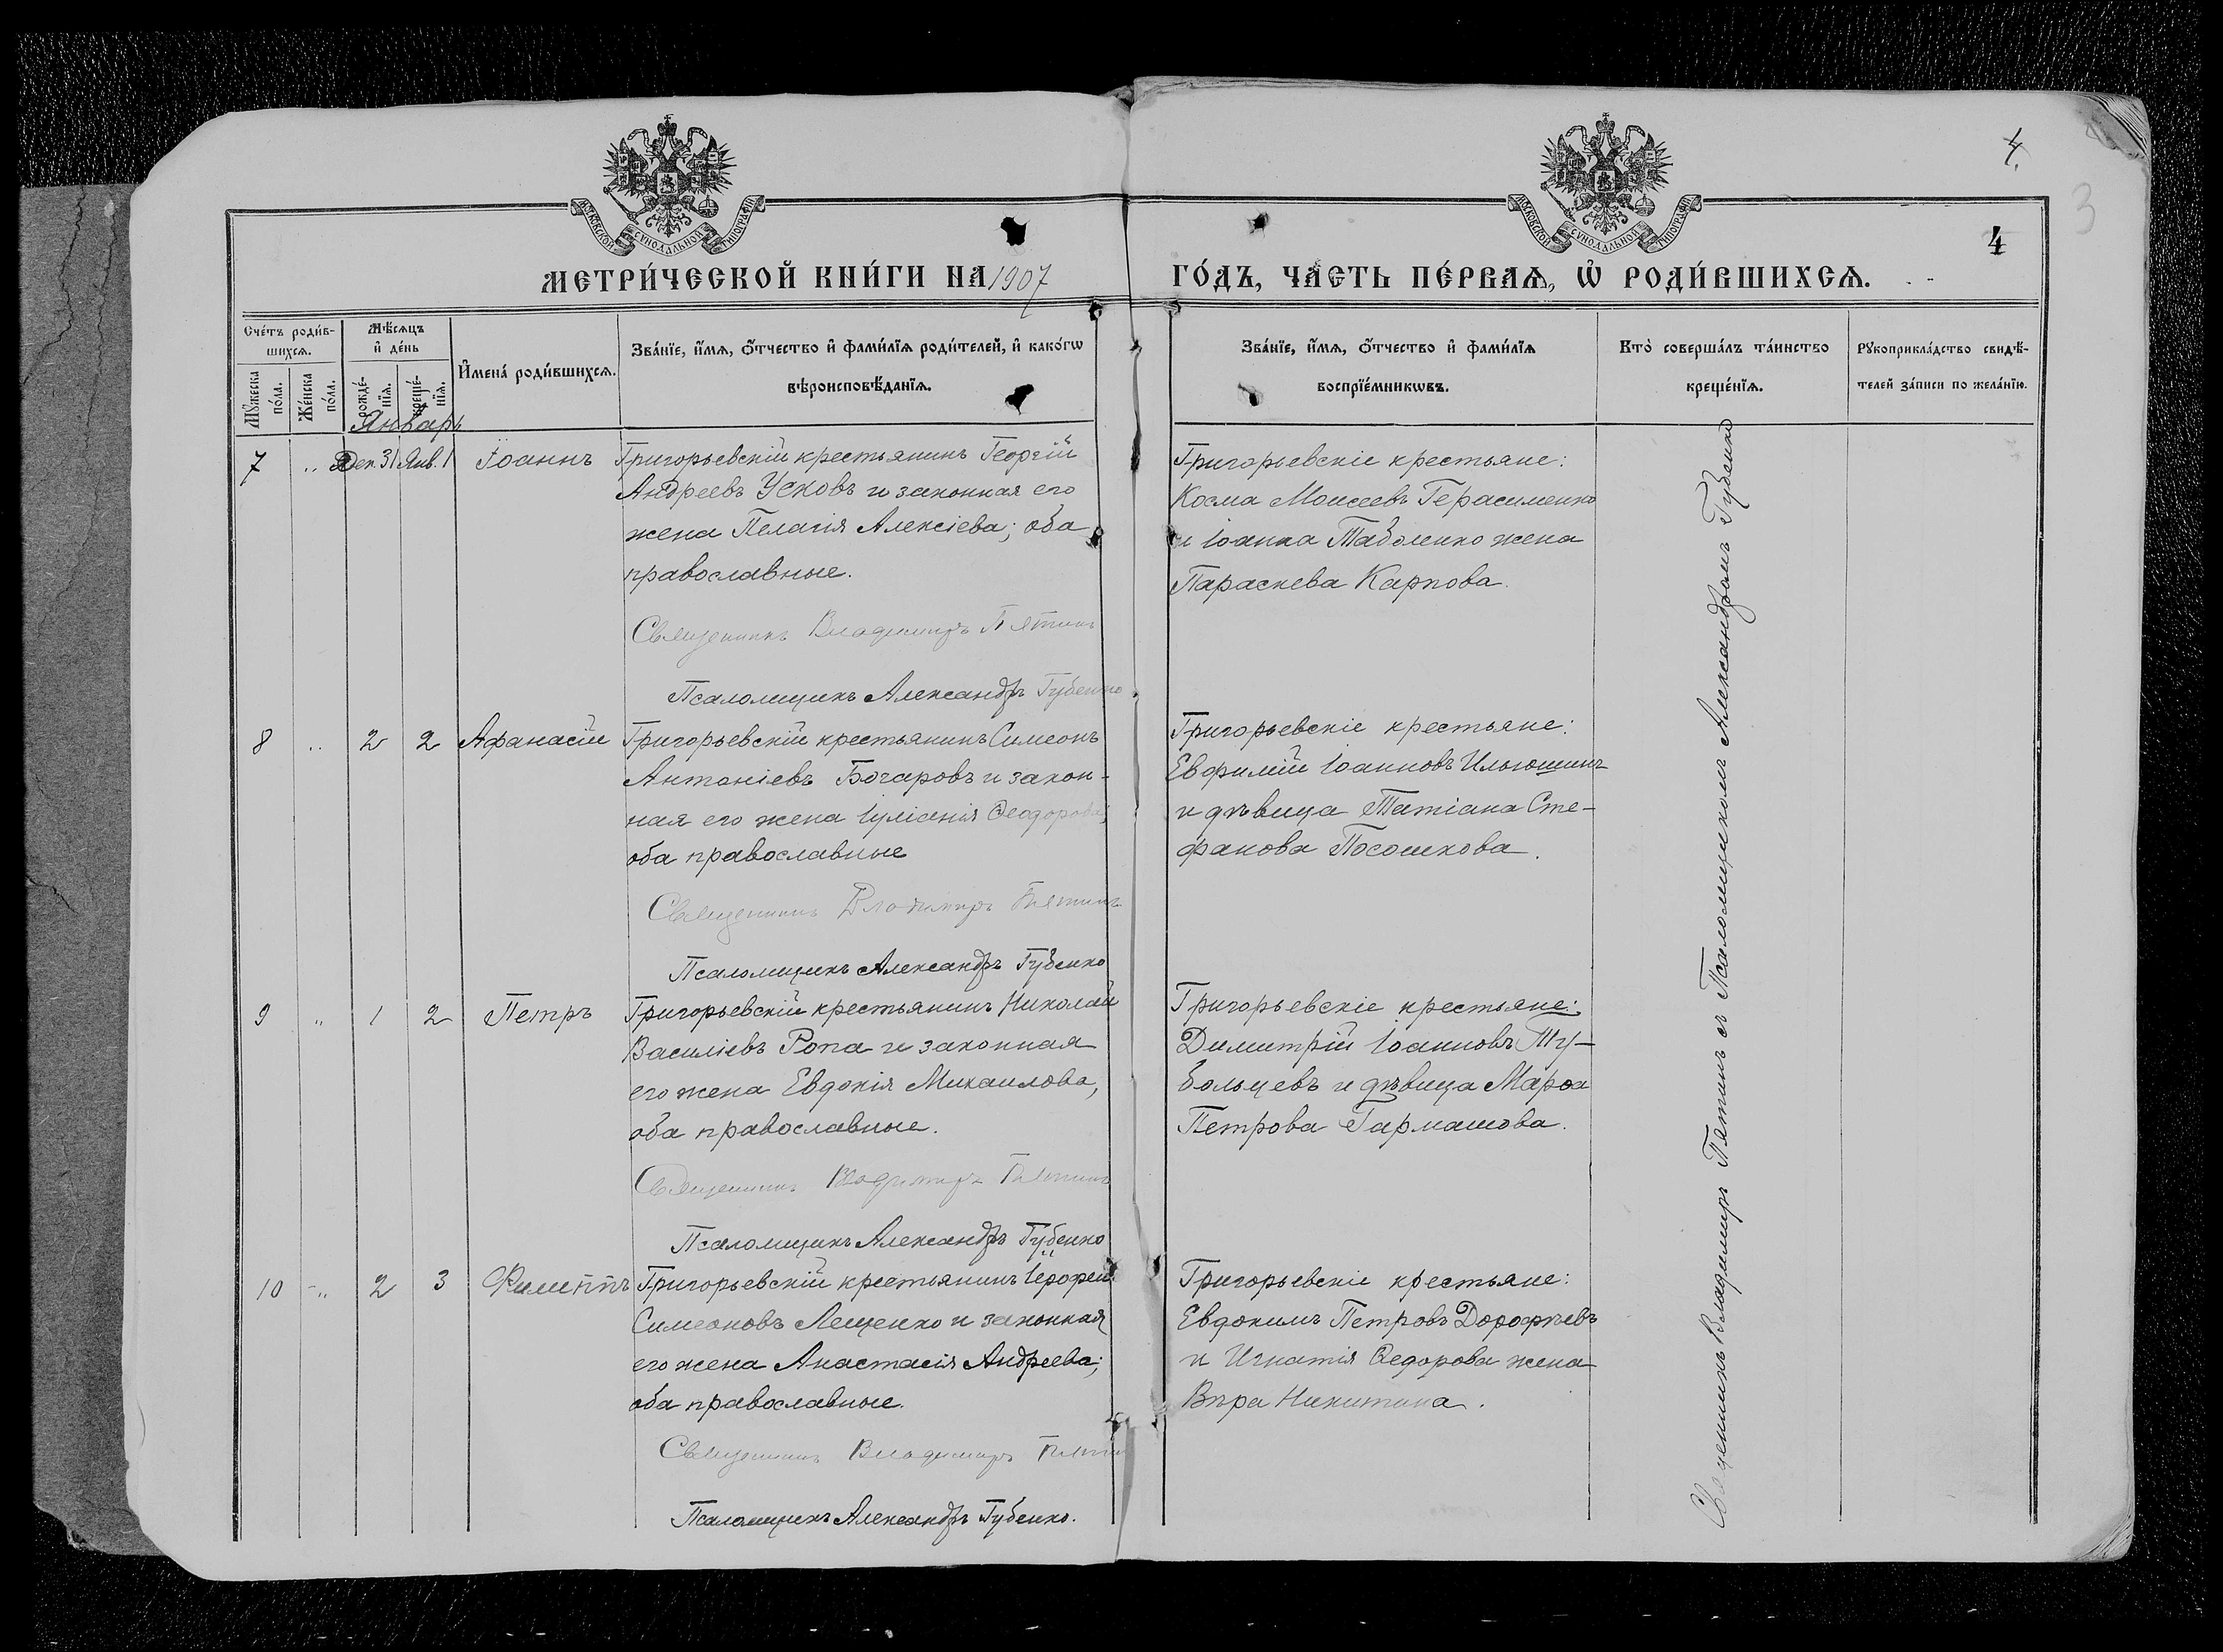 4.
3
4
МОСКОВСКОЙ СУНОДАЛЬНОЙ ТИПОГРАФІИ
МОСКОВСКОЙ СУНОДАЛЬНОЙ ТИПОГРАФІИ
МЕТРИ́ЧЕСКОЙ КНИ́ГИ НА 1907 ГО́ДЪ, ЧА́СТЬ ПЕ́РВАѦ, Ѡ҆ РОДИ́ВШИХСѦ.
Сче́тъ роди́в-
шихсѧ.
Мѣ́сѧцъ
и҆ де́нь
Мꙋ́жеска
по́ла.
Же́нска
по́ла.
рожде́-
нїѧ.
креще́-
нїѧ.
И҆мена̀ роди́вшихсѧ.
Зва́нїе, и҆́мѧ, ѻ҆́тчество и҆ фами́лїѧ роди́телей, и҆ како́гѡ
вѣроисповѣ́данїѧ.
Зва́нїе, и҆́мѧ, ѻ҆́тчество и҆ фами́лїѧ
воспрїе́мникѡвъ.
Кто̀ соверша́лъ та́инство
креще́нїѧ.
Рꙋкоприкла́дство свидѣ́-
телей за́писи по жела́нїю.
Январь
7 „ Дек. 31 Янв. 1 Іоаннъ
Григорьевскій крестьянинъ Георгій
Андреевъ Усковъ и законная его
жена Пелагія Алексіева; оба
православные.
Священникъ Владимиръ Пятинъ
Псаломщикъ Александръ Губенко
Григорьевскіе крестьяне:
Косма Моисеевъ Герасименко
и Іоанна Таволенко жена
Параскева Карпова.
8 „ 2 2 Афанасій
Григорьевскій крестьянинъ Симеонъ
Антоніевъ Бочаровъ и закон-
ная его жена Іуліанія Ѳеодорова;
оба православные
Священникъ Владимиръ Пятинъ
Псаломщикъ Александръ Губенко
Григорьевскіе крестьяне:
Евфимій Іоанновъ Ильюшинъ
и дѣвица Татіана Сте-
фанова Посошкова.
9 „ 1 2 Петръ
Григорьевскій крестьянинъ Николай
Василіевъ Ропа и законная
его жена Евдокія Михаилова,
оба православные.
Священникъ Владимиръ Пятинъ
Псаломщикъ Александръ Губенко
Григорьевскіе крестьяне:
Димитрій Іоанновъ Ту-
больцевъ и дѣвица Марѳа
Петрова Гармашова.
10 „ 2 3 Филиппъ
Григорьевскій крестьянинъ Іерофей
Симеоновъ Лещенко и законная
его жена Анастасія Андреева;
оба православные.
Священникъ Владимиръ Пятинъ
Псаломщикъ Александръ Губенко.
Григорьевскіе крестьяне:
Евдокимъ Петровъ Дорофѣевъ
и Игнатія Ѳедорова жена
Вѣра Никитина.
Священникъ Владимиръ Пятинъ съ Псаломщикомъ Александромъ Губенко